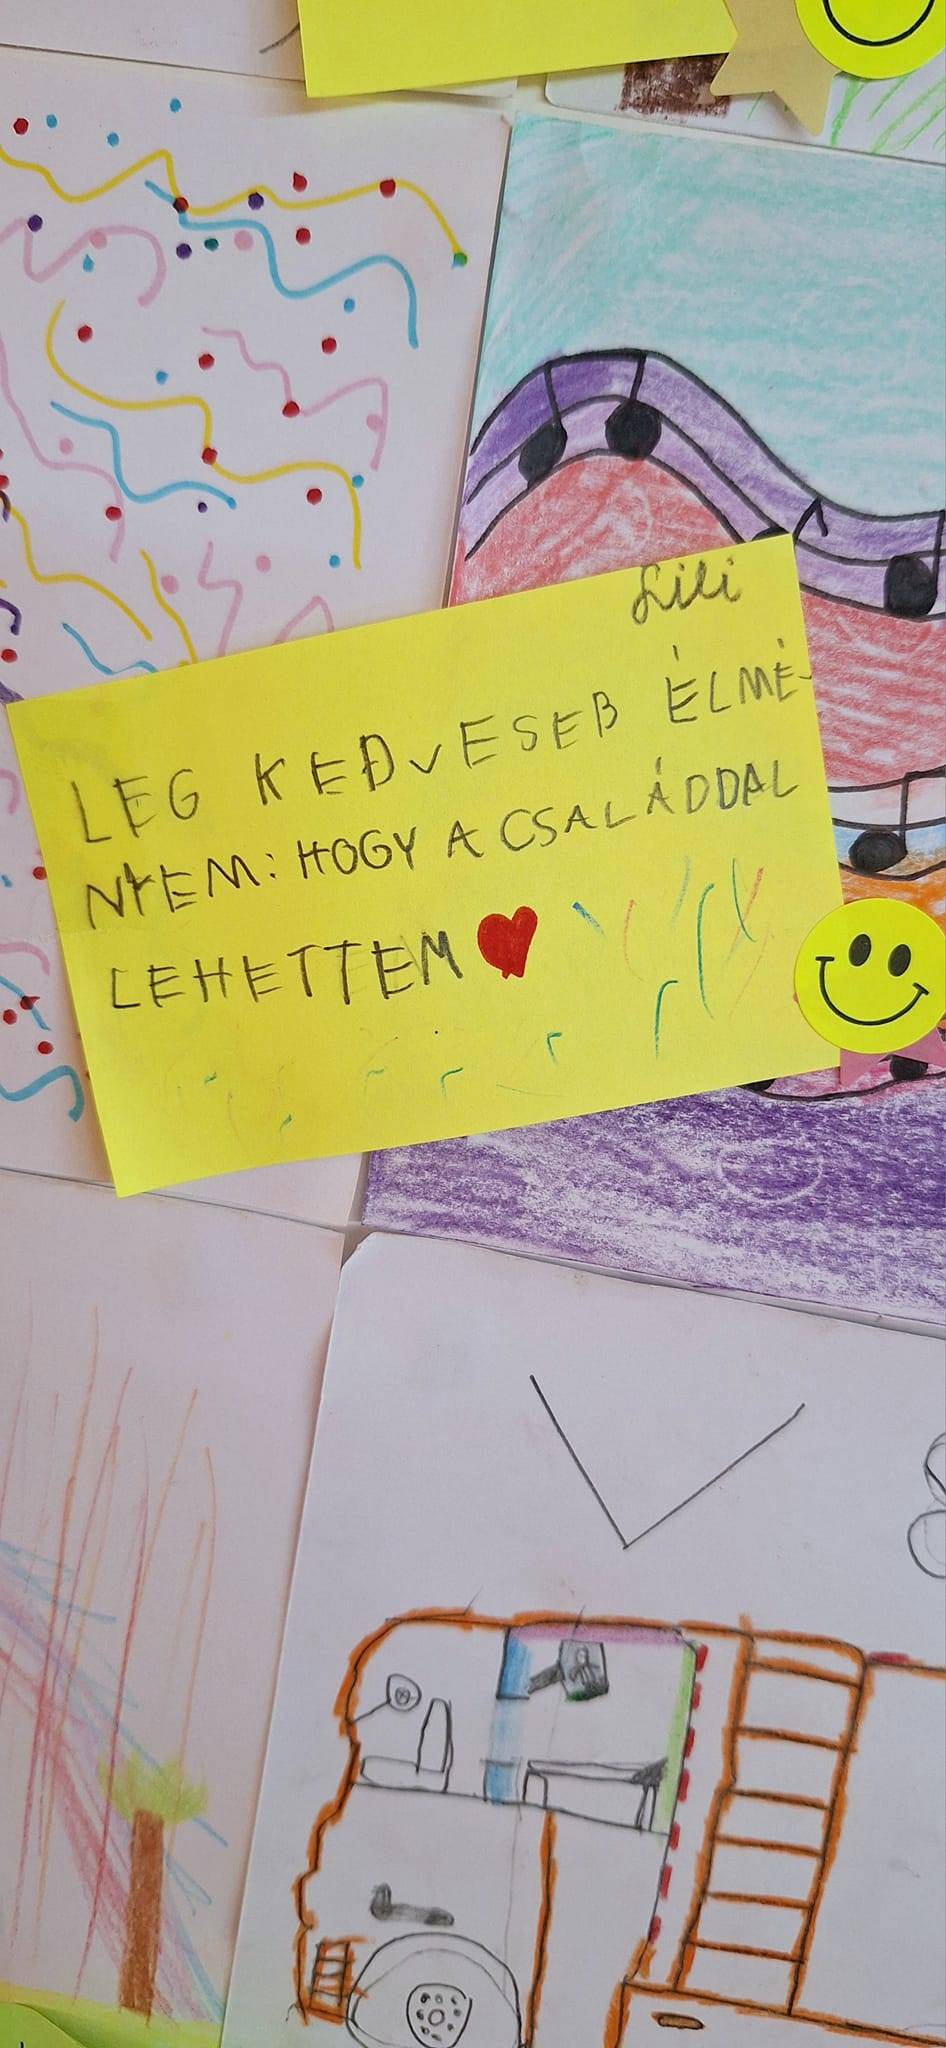 Lili
LEG KEDVESEB ÉLMÉ-
NYEM: HOGY A CSALÁDDAL
LEHETTEM